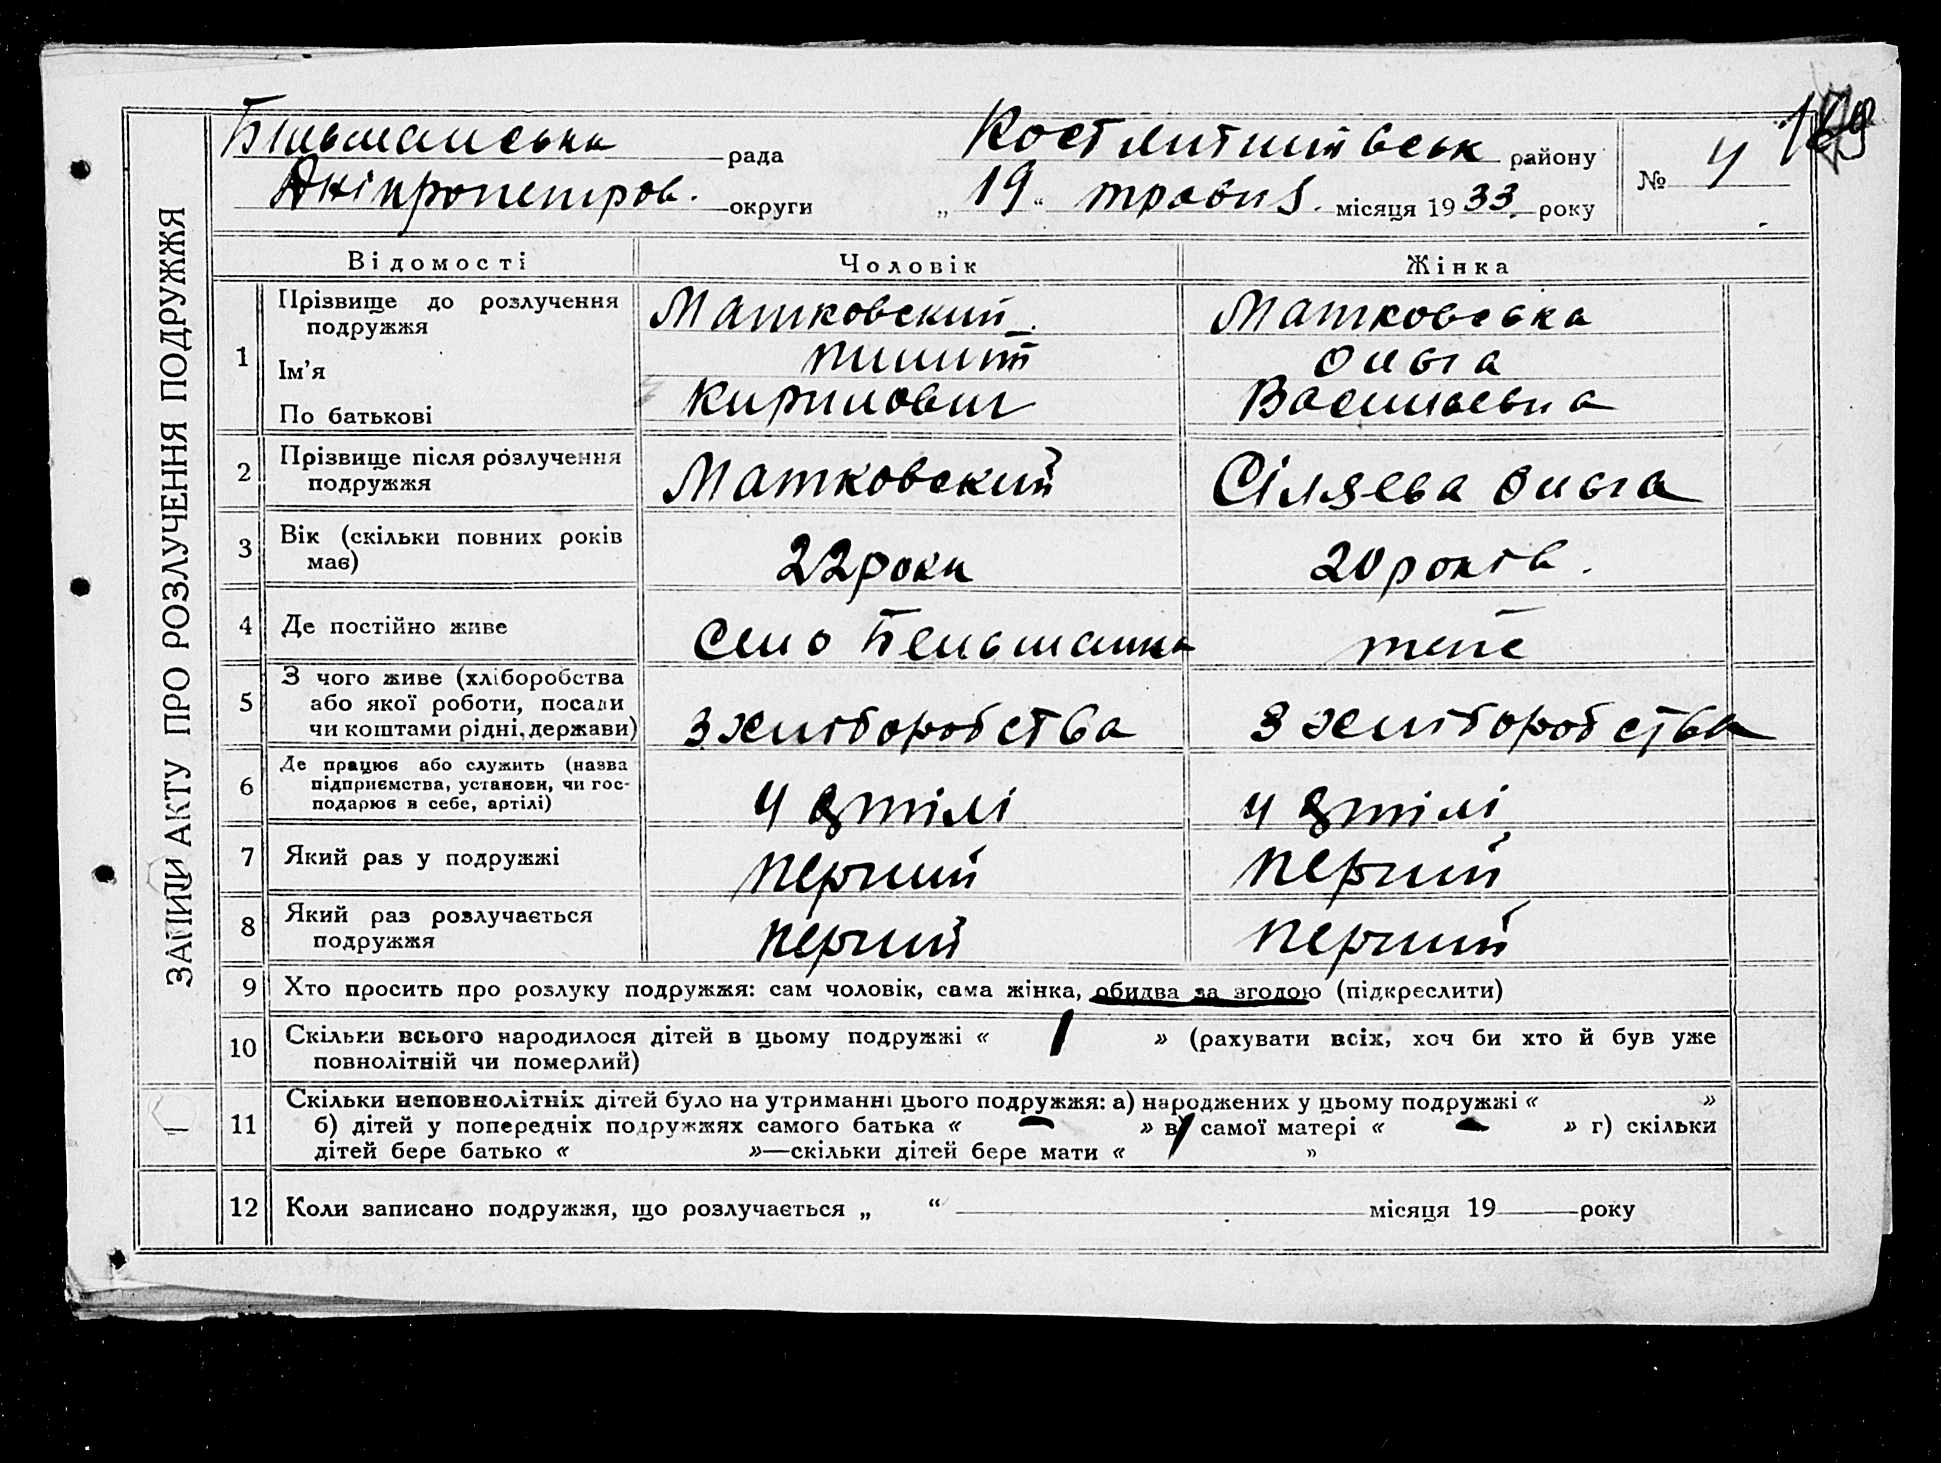 ЗАПИЛИ АКТУ ПРО РОЗЛУЧЕННЯ ПОДРУЖЖЯ
Більманська рада району № 4
Дніпропетров. округи „ 19 “ травня місяця 19 33. року
Відомості Чоловік Жінка
1 Прізвище до розлучення Матковский Матковська
подружжя
Ім’я Пилип Ольга
По батькові Кирилович Васильевна
2 Прізвище після розлучення Матковский Сіляева Ольга
подружжя
3 Вік (скільки повних років 22 роки 20 років.
має)
4 Де постійно живе Село Бельманка теґе
5 З чого живе (хліборобства З хліборобства З хліборобства
або якої роботи, посади
чи коштами рідні, держави)
6 Де працює або служить (назва У артілі У артілі
підприємства, установи, чи гос-
подарює в себе, артілі)
7 Який раз у подружжі перший перший
8 Який раз розлучається перший перший
подружжя
9 Хто просить про розлуку подружжя: сам чоловік, сама жінка, обидва за згодою (підкреслити)
10 Скільки всього народилося дітей в цьому подружжі « 1 » (рахувати всіх, хоч би хто й був уже
повнолітній чи померлий)
11 Скільки неповнолітніх дітей було на утриманні цього подружжя: а) народжених у цьому подружжі « »
б) дітей у попередніх подружжях самого батька « – » в) самої матері « – » г) скільки
дітей бере батько « »—скільки дітей бере мати « 1 »
12 Коли записано подружжя, що розлучається „ “ місяця 19 року